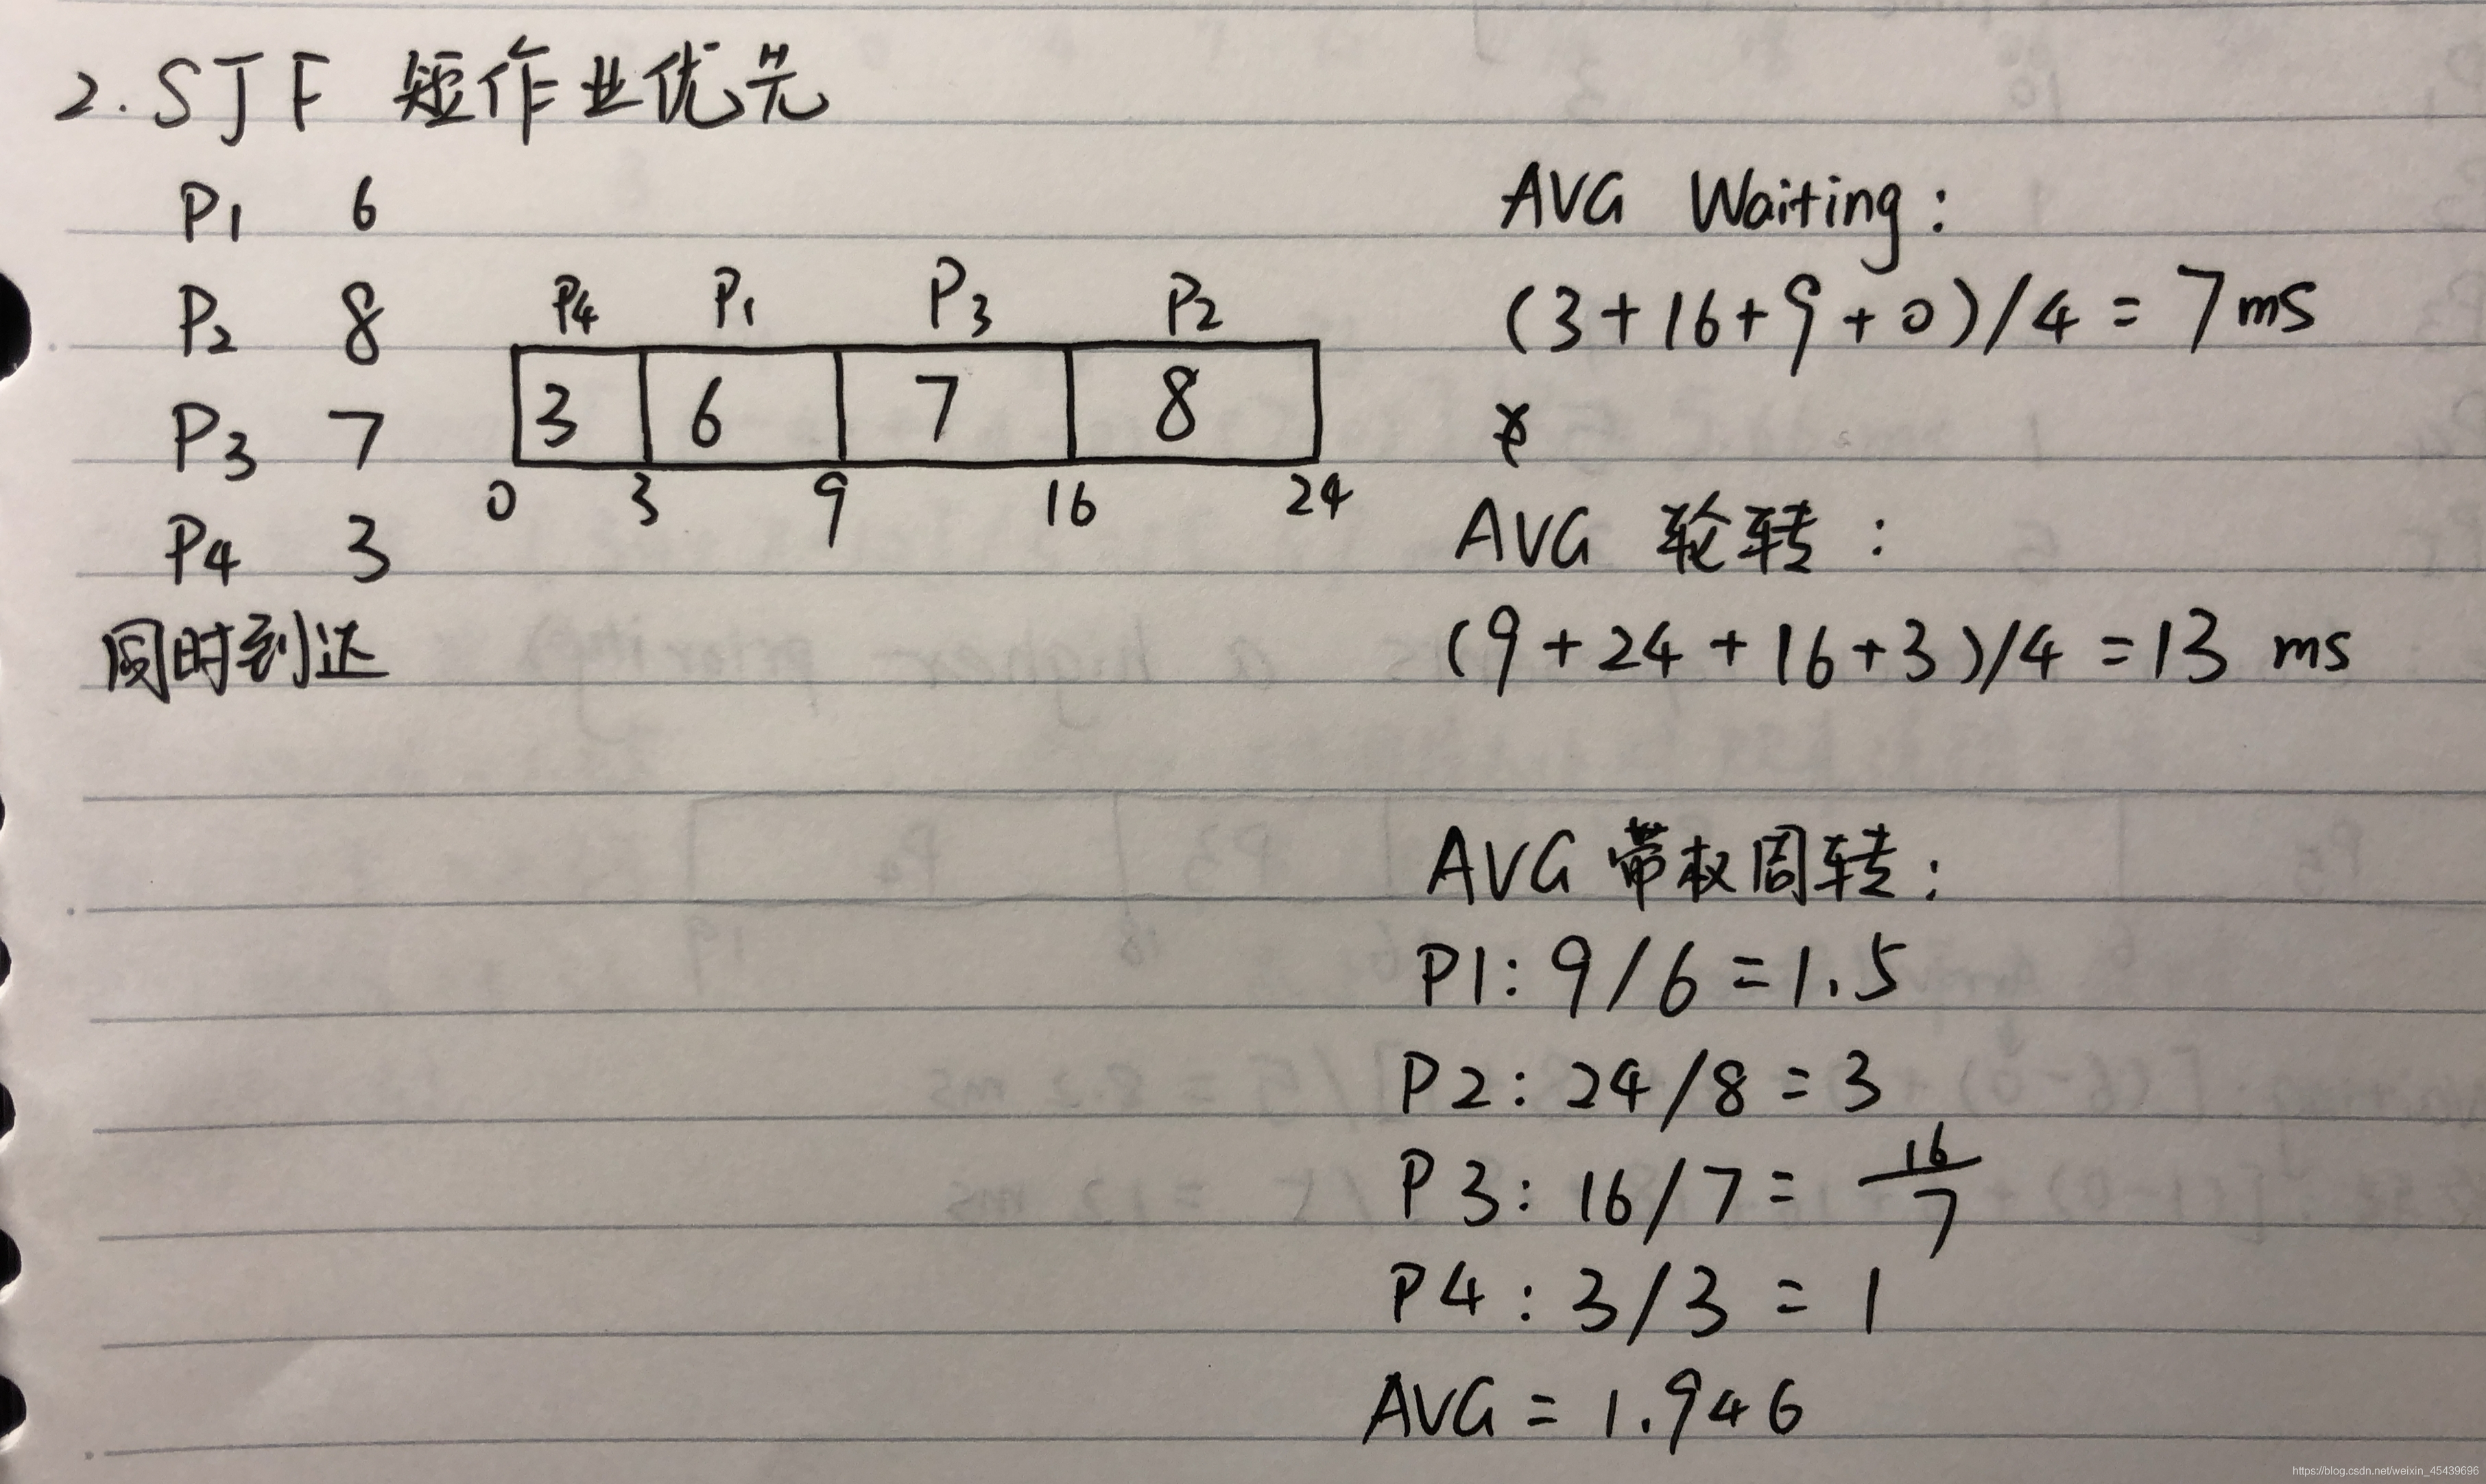 2. SJF 短作业优先
P1 6
P2 8
P3 7
P4 3
同时到达
P4 P1 P3 P2
3 6 7 8
0 3 9 16 24
AVG Waiting:
(3+16+9+0)/4 = 7ms
AVG 轮转:
(9+24+16+3)/4=13 ms
AVG 带权周转:
P1: 9/6=1.5
P2: 24/8=3
P3: 16/7= 16/7
P4: 3/3 = 1
AVG = 1.946
https://blog.csdn.net/weixin_45439696